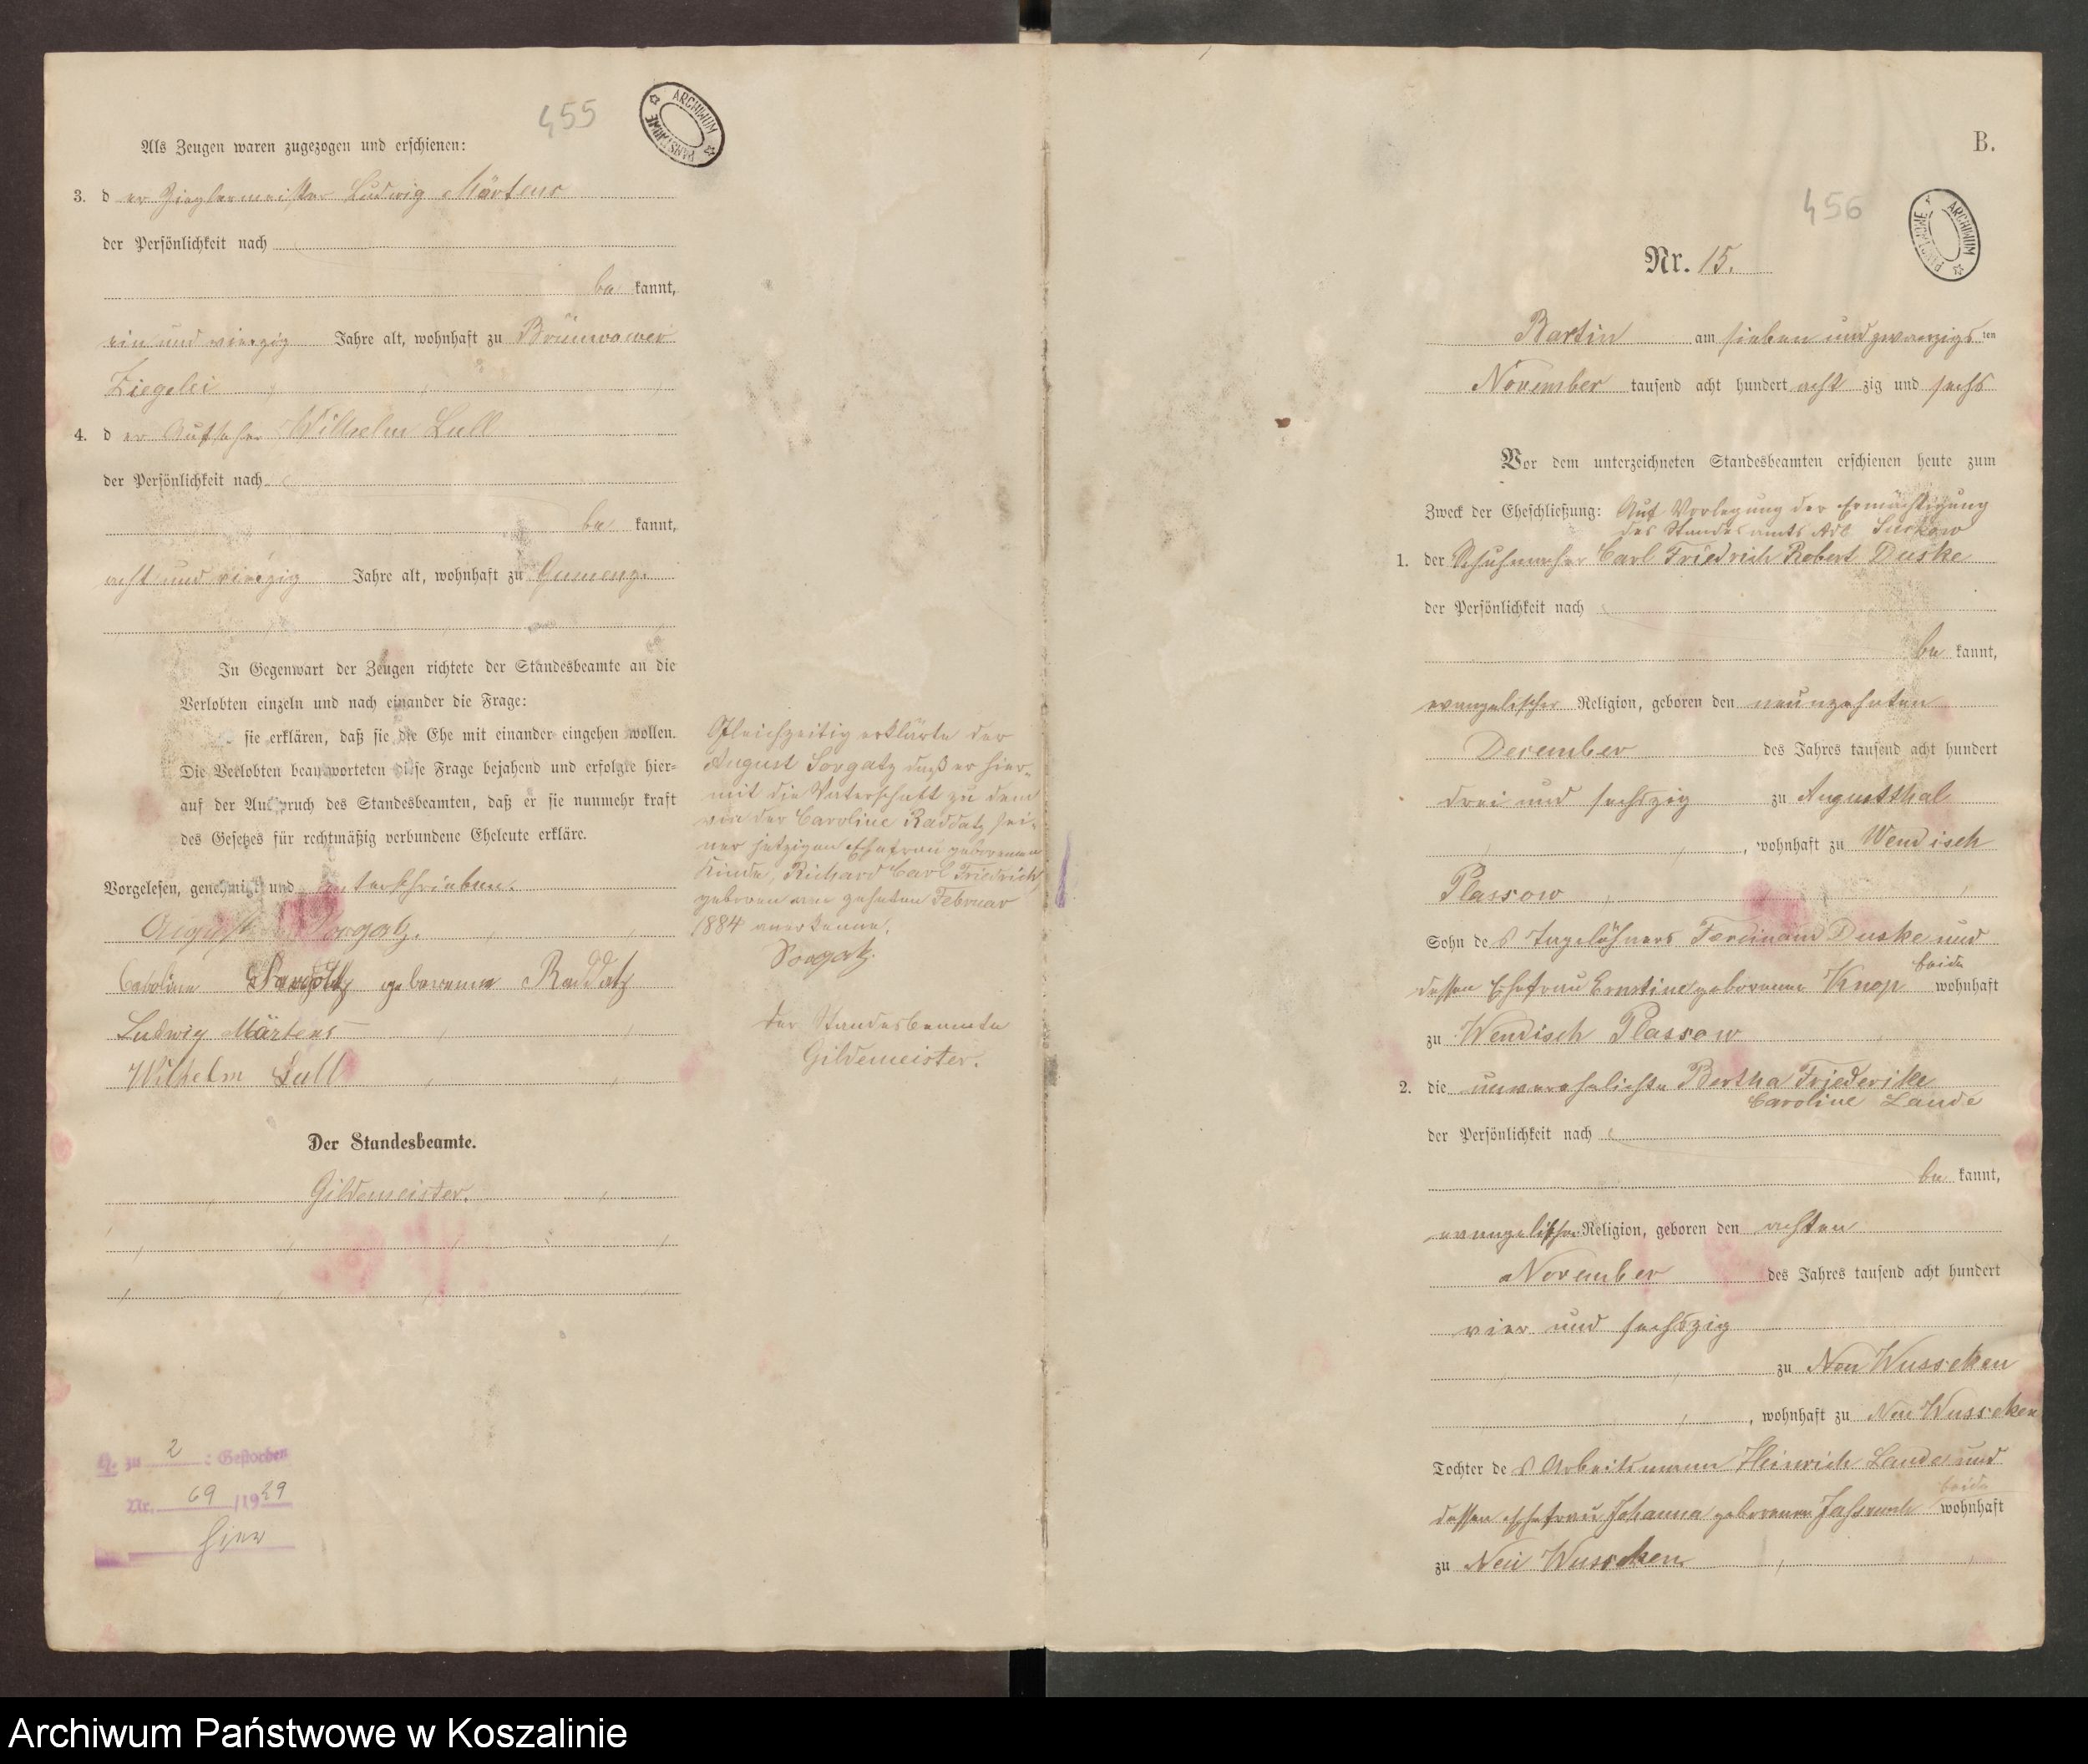 455
ARCHIWUM PAŃSTWOWE
Als Zeugen waren zugezogen und erschienen:
3. d er Zieglermeister Ludwig Märtens
der Persönlichkeit nach
be kannt,
ein und vierzig Jahre alt, wohnhaft zu
Ziegelei
4. d er Aufseher Wilhelm Lull
der Persönlichkeit nach
be kannt,
acht und vierzig Jahre alt, wohnhaft zu Gumenz.
In Gegenwart der Zeugen richtete der Standesbeamte an die
Verlobten einzeln und nach einander die Frage:
sie erklären, daß sie die Ehe mit einander eingehen wollen.
Die Verlobten beantworteten diese Frage bejahend und erfolgte hier-
auf der Ausspruch des Standesbeamten, daß er sie nunmehr kraft
des Gesetzes für rechtmäßig verbundene Eheleute erkläre.
Vorgelesen, genehmigt und unterschrieben.
August Sorgatz.
Caroline geborenne Raddatz
Ludwig Märtens
Wilhelm Lull
Der Standesbeamte.
Gildemeister.
H. zu 2 : Gestorben
Nr. 69 /1939
hier
Gleichzeitig erklärte der
August Sorgatz daß er hier-
mit die Vaterschaft zu dem
von der Caroline Raddatz sei-
ner jetzigen Ehefrau geborenen
Kinde, Richard Carl Friedrich,
geboren am zehnten Februar
1884 anerkenne.
Sorgatz.
Der Standesbeamte
Gildemeister.
B.
456
ARCHIWUM PAŃSTWOWE
Nr. 15.
Bartin am sieben und zwanzigs ten
November tausend acht hundert acht zig und sechs
Vor dem unterzeichneten Standesbeamten erschienen heute zum
Zweck der Eheschließung: Auf Vorlegung der Ermächtigung
des Standesamts Adl Suckow
1. der Schuhmacher Carl Friedrich Robert Duske
der Persönlichkeit nach
be kannt,
evangelischer Religion, geboren den neunzehnten
December des Jahres tausend acht hundert
drei und sechszig zu Augustthal
, wohnhaft zu Wendisch
Plassow
Sohn de s Tagelöhners Ferdinand Duske und
dessen Ehefrau Ernstine geborenne Knop beide wohnhaft
zu Wendisch Plassow
2. die unverehelichte Bertha Friederike
Caroline Lande
der Persönlichkeit nach
be kannt,
evangelischer Religion, geboren den achten
November des Jahres tausend acht hundert
vier und sechszig
zu Neu Wusseken
, wohnhaft zu Neu Wusseken
Tochter de s Arbeitsmann Heinrich Lande und
dessen Ehefrau Johanna geborenne beide wohnhaft
zu Neu Wusseken
Archiwum Państwowe w Koszalinie